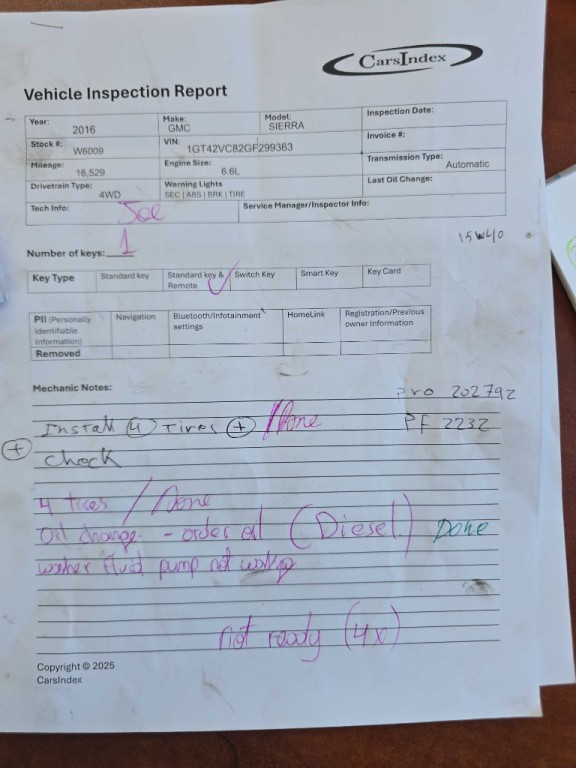 CarsIndex
Vehicle Inspection Report
Year: 2016 Make: GMC Model: SIERRA Inspection Date:
Stock #: W6009 VIN: 1GT42VC82GF299363 Invoice #:
Mileage: 16,529 Engine Size: 6.6L Transmission Type: Automatic
Drivetrain Type: 4WD Warning Lights SEC | ABS | BRK | TIRE Last Oil Change:
Tech Info: Joe Service Manager/Inspector Info:
15W40
Number of keys: 1
Key Type Standard key Standard key & Remote Switch Key Smart Key Key Card
PII (Personally Identifiable Information) Navigation Bluetooth/Infotainment settings HomeLink Registration/Previous owner Information
Removed
Mechanic Notes:
Pro 202792
Install 4 Tires + / Done PF 2232
+ Check
4 tires / Done
Oil change - order oil (Diesel) Done
washer fluid pump not working
not ready (4x)
Copyright © 2025
CarsIndex